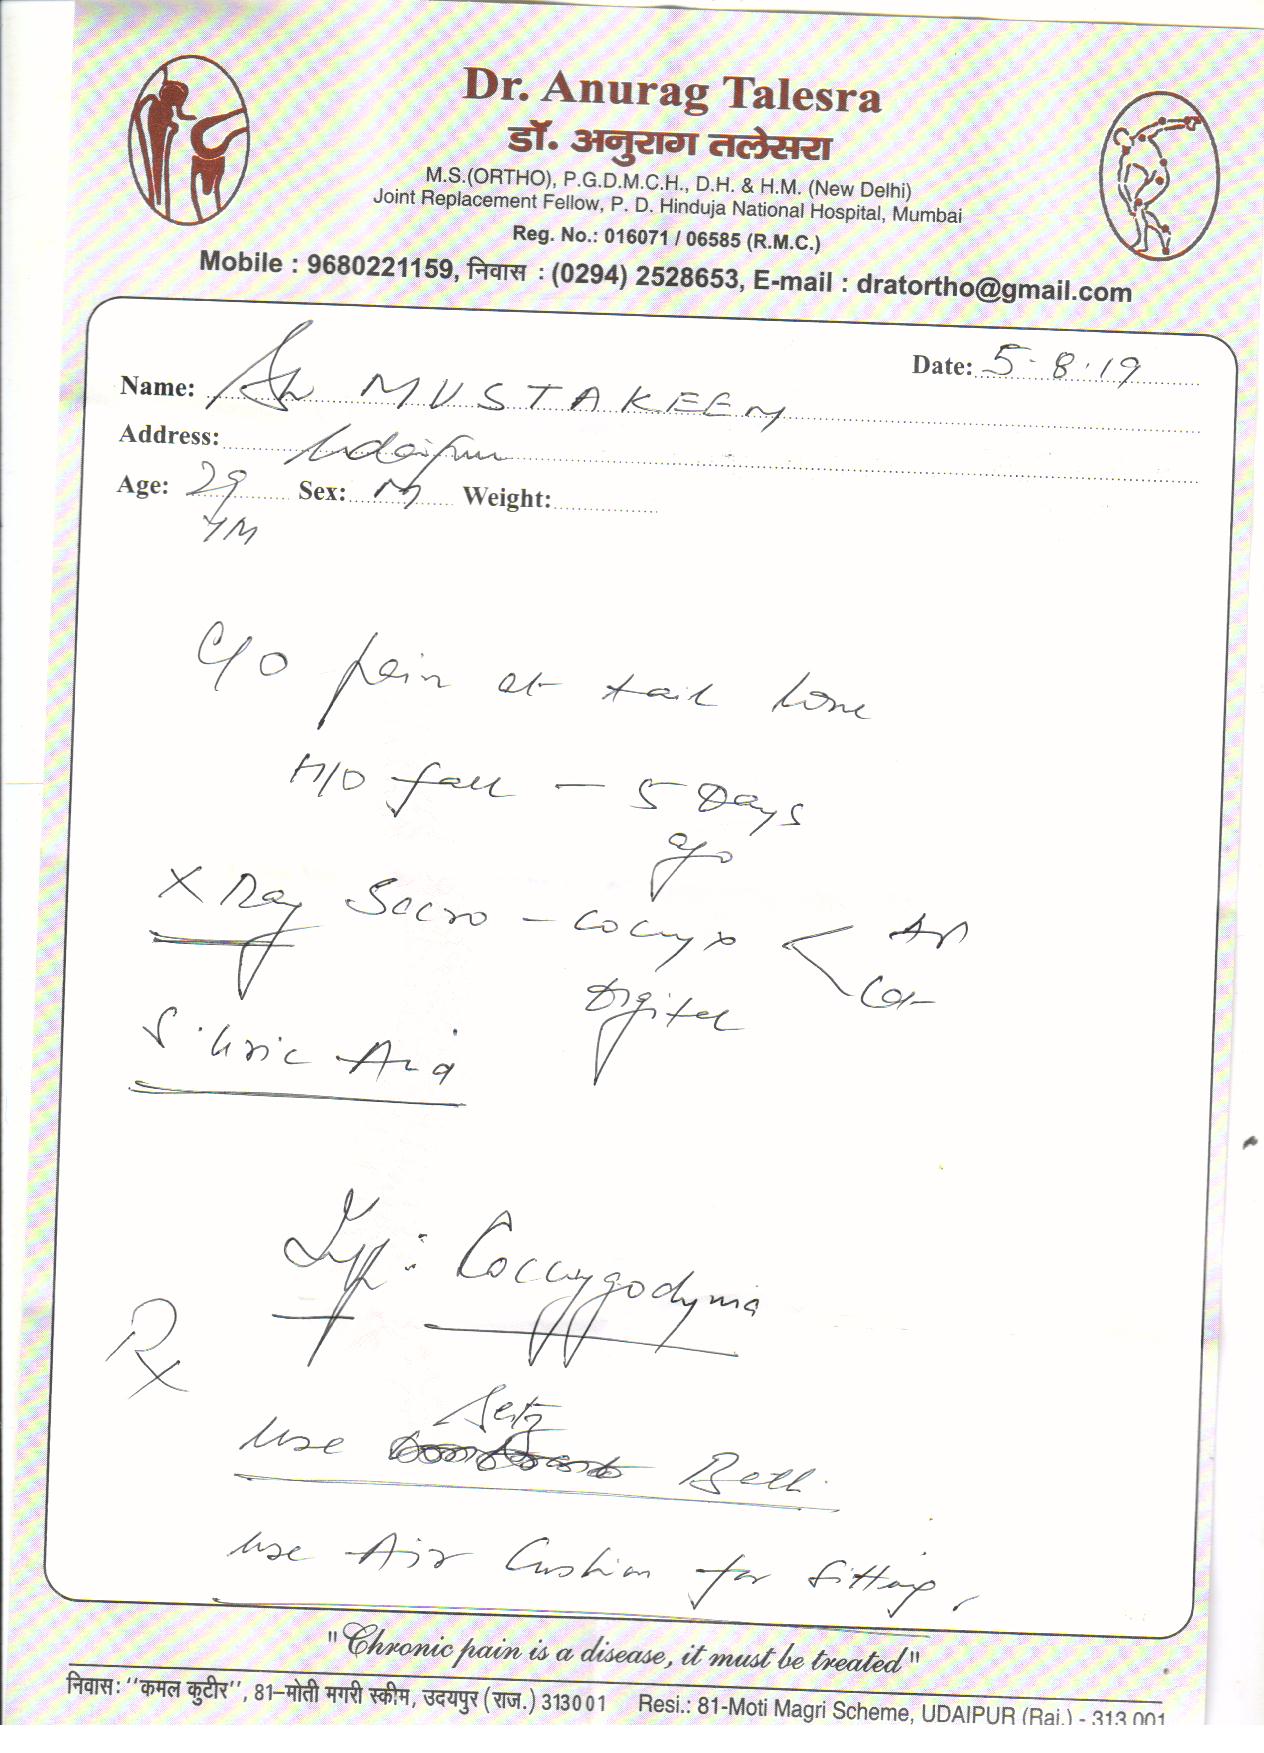 Dr. Anurag Talesra
डॉ. अनुराग तलेसरा
M.S.(ORTHO), P.G.D.M.C.H., D.H. & H.M. (New Delhi)
Joint Replacement Fellow, P. D. Hinduja National Hospital, Mumbai
Reg. No.: 016071 / 06585 (R.M.C.)
Mobile : 9680221159, निवास : (0294) 2528653, E-mail : dratortho@gmail.com
Date: 5.8.19
Name: MUSTAKEEM
Address: Udaipur
Age: 29 Sex: M Weight:
YM
C/O pain at tail bone
H/O fall - 5 Days
ago
X Ray Sacro - cocyx < AP
Digital Lat
S. Uric Acid
Imp: Coccygodynia
Rx
use Seitz Bath.
use Air Cushion for sitting.
"Chronic pain is a disease, it must be treated"
निवास: "कमल कुटीर", 81-मोती मगरी स्कीम, उदयपुर (राज.) 313001 Resi.: 81-Moti Magri Scheme, UDAIPUR (Raj.) - 313 001